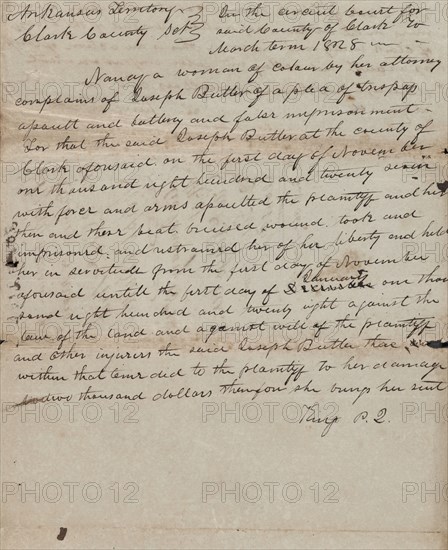 Arkansas Territory } In the circuit court for
Clark County Sct } said County of Clark To
March term 1828
Nancy a woman of colour by her attorney
complains of Joseph Butler of a plea of trespass
assault and battery and false imprisonment
For that the said Joseph Butler at the county of
Clark aforesaid on the first day of November
one thousand eight hundred and twenty seven
with force and arms assaulted the plaintiff and her
then and there beat bruised wound took and
imprisoned and restrained her of her liberty and held
her in servitude from the first day of November
aforesaid untill the first day of January one thou
sand eight hundred and twenty eight against the
law of the land and against will of the plaintiff
and other injuries the said Joseph Butler
within that time did to the plaintiff to her damage
two thousand dollars therefore she brings her suit
King P. Q.
PHOTO 12